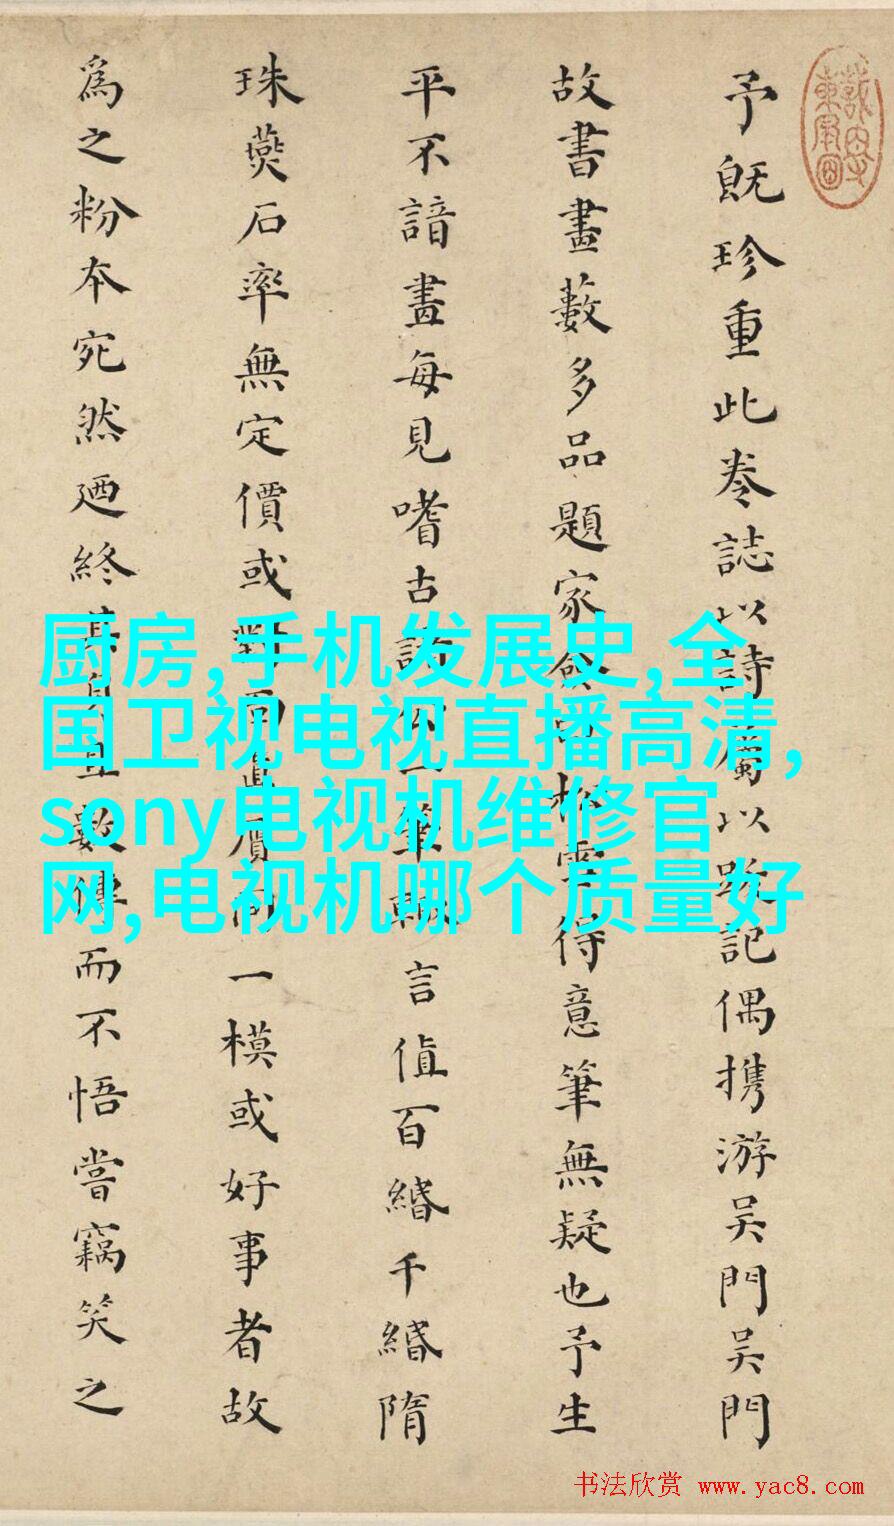 予旣珍重此卷誌以詩屬以跋記偶携游吴門吴門
故書畫藪多品題家僉松雪得意筆無疑也予生
平不諳畫每見嗜古諸公一筆輒言值百緡千緡隋
珠燕石率無定價或對面真贋一模或好事者故
為之粉本宛然廼終其身且數傳而不悟嘗竊笑之
厨房,手机发展史,全
国卫视电视直播高清,
sony电视机维修官
网,电视机哪个质量好
书法欣赏 www.yac8.com